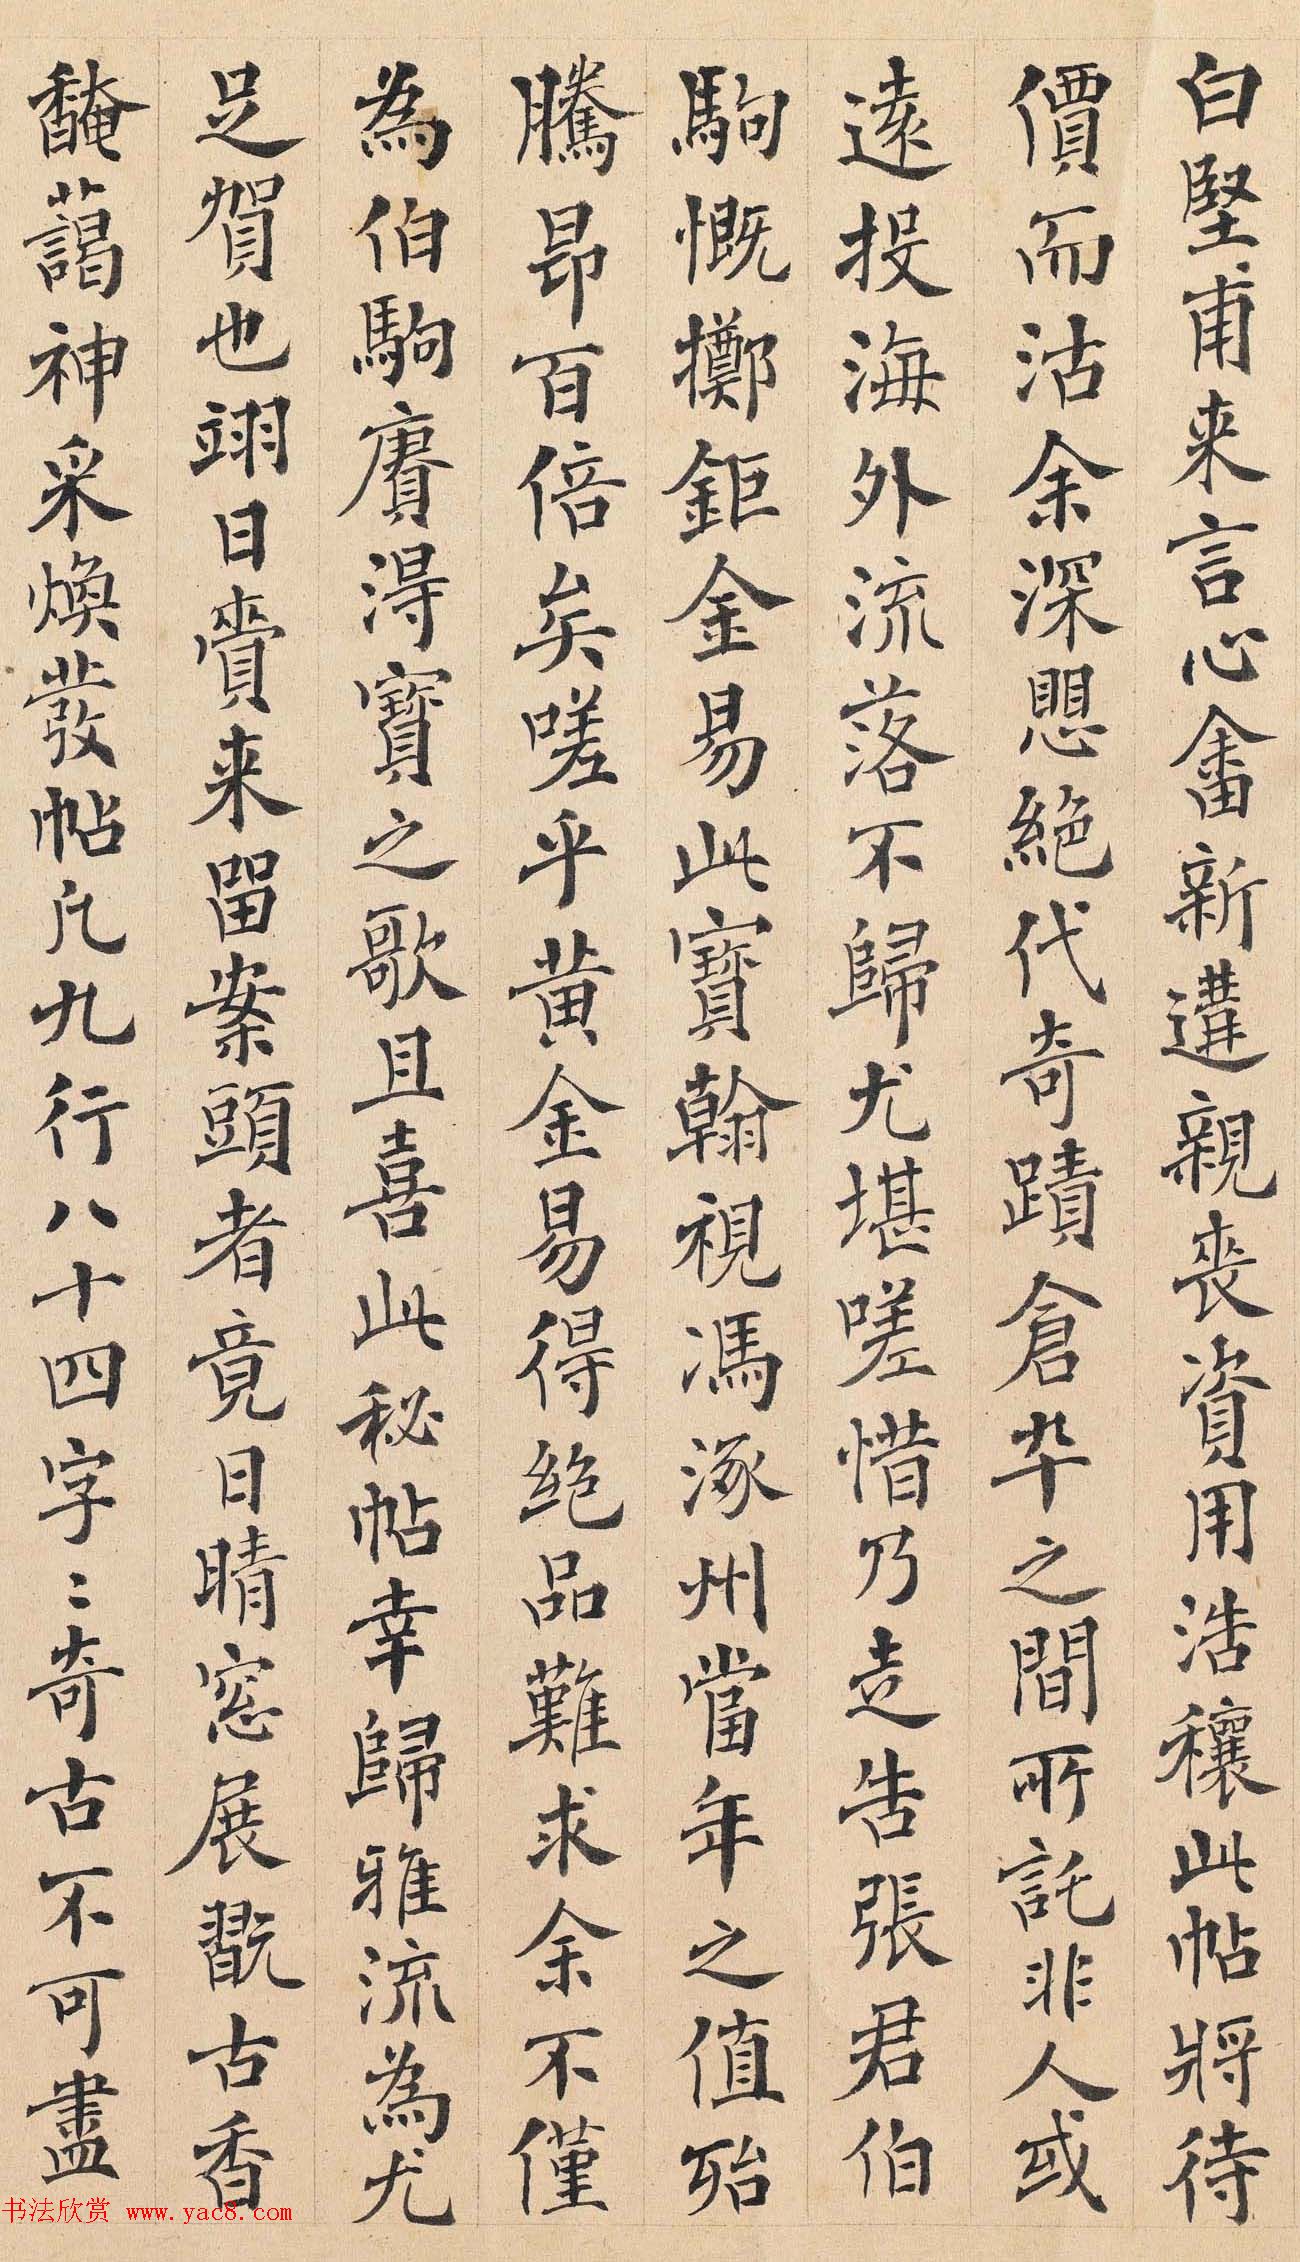 白堅甫来言心畬新遘親喪資用浩穰此帖將待
價而沽余深恐絕代奇蹟倉卒之間所託非人或
遠投海外流落不歸尤堪嗟惜乃走告張君伯
駒慨擲鉅金易此寶翰視馮涿州當年之值殆
騰昂百倍矣嗟乎黃金易得絕品難求余不僅
為伯駒賡得寶之歌且喜此秘帖幸歸雅流為尤
足賀也翊日賫来留案頭者竟日晴窓展翫古香
馣藹神采煥發帖凡九行八十四字〻奇古不可盡
书法欣赏 www.yac8.com